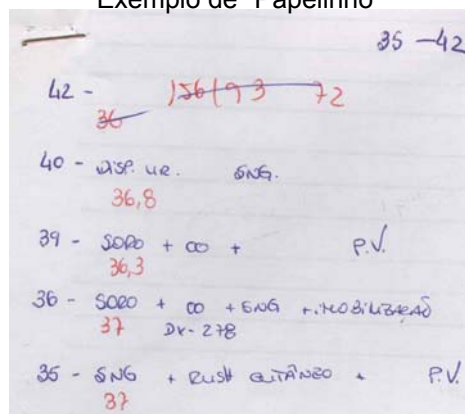 Exemplo de "Papelinho"
35 - 42
42 - 156/93 72
36
40 - DISP. UR. SNG.
36,8
39 - SORO + ∞ + P.V.
36,3
36 - SORO + ∞ + SNG + IMOBILIZAÇÃO
37 DX - 278
35 - SNG + RUSH CUTÂNEO + P.V.
37